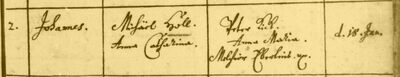 2. Johannes.
Michael Höll.
Anna Catharina.
Peter
Anna Maria.
Melchior Eberlins. ux.
d. 18. Jan.